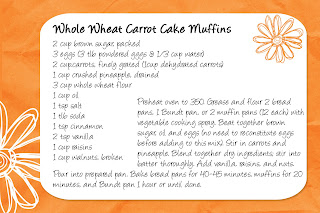 Whole Wheat Carrot Cake Muffins
2 cup brown sugar, packed
3 eggs (3 tbl powdered eggs & 1/3 cup water)
2 cups carrots, finely grated (1 cup dehydrated carrots)
1 cup crushed pineapple, drained
3 cup whole wheat flour
1 cup oil
1 tsp salt
1 tlb soda
1 tsp cinnamon
2 tsp vanilla
1 cup raisins
1 cup walnuts, broken
Preheat oven to 350. Grease and flour 2 bread
pans, 1 Bundt pan, or 2 muffin pans (12 each) with
vegetable cooking spray. Beat together brown
sugar, oil, and eggs (no need to reconstitute eggs
before adding to this mix). Stir in carrots and
pineapple. Blend together dry ingredients; stir into
batter thoroughly. Add vanilla, raisins, and nuts.
Pour into prepared pan. Bake bread pans for 40-45 minutes, muffins for 20
minutes, and Bundt pan 1 hour or until done.